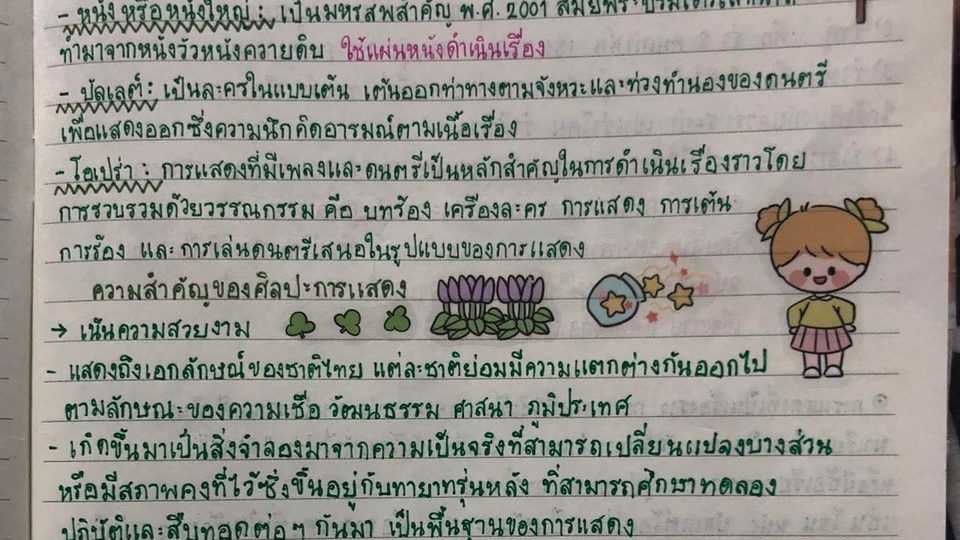 - หนังหรือหนังใหญ่ : เป็นมหรสพสำคัญ พ.ศ. 2001 สมัยพระบรมไตรโลกนาถ
ทำมาจากหนังวัวหนังควายดิบ ใช้แผ่นหนังดำเนินเรื่อง
- บัลเลต์ : เป็นละครในแบบเต้น เต้นออกท่าทางตามจังหวะและท่วงทำนองของดนตรี
เพื่อแสดงออกซึ่งความนึกคิดอารมณ์ตามเนื้อเรื่อง
- โอเปร่า : การแสดงที่มีเพลงและดนตรีเป็นหลักสำคัญในการดำเนินเรื่องราวโดย
การรวบรวมด้วยวรรณกรรม คือ บทร้อง เครื่องละคร การแสดง การเต้น
การร้อง และการเล่นดนตรีเสนอในรูปแบบของการแสดง
ความสำคัญของศิลปะการแสดง
→ เน้นความสวยงาม
- แสดงถึงเอกลักษณ์ของชาติไทย แต่ละชาติย่อมมีความแตกต่างกันออกไป
ตามลักษณะของความเชื่อ วัฒนธรรม ศาสนา ภูมิประเทศ
- เกิดขึ้นมาเป็นสิ่งจำลองมาจากความเป็นจริงที่สามารถเปลี่ยนแปลงบางส่วน
หรือมีสภาพคงที่ไว้ซึ่งขึ้นอยู่กับทายาทรุ่นหลัง ที่สามารถศึกษาทดลอง
ปฏิบัติและสืบทอดต่อๆ กันมา เป็นพื้นฐานของการแสดง